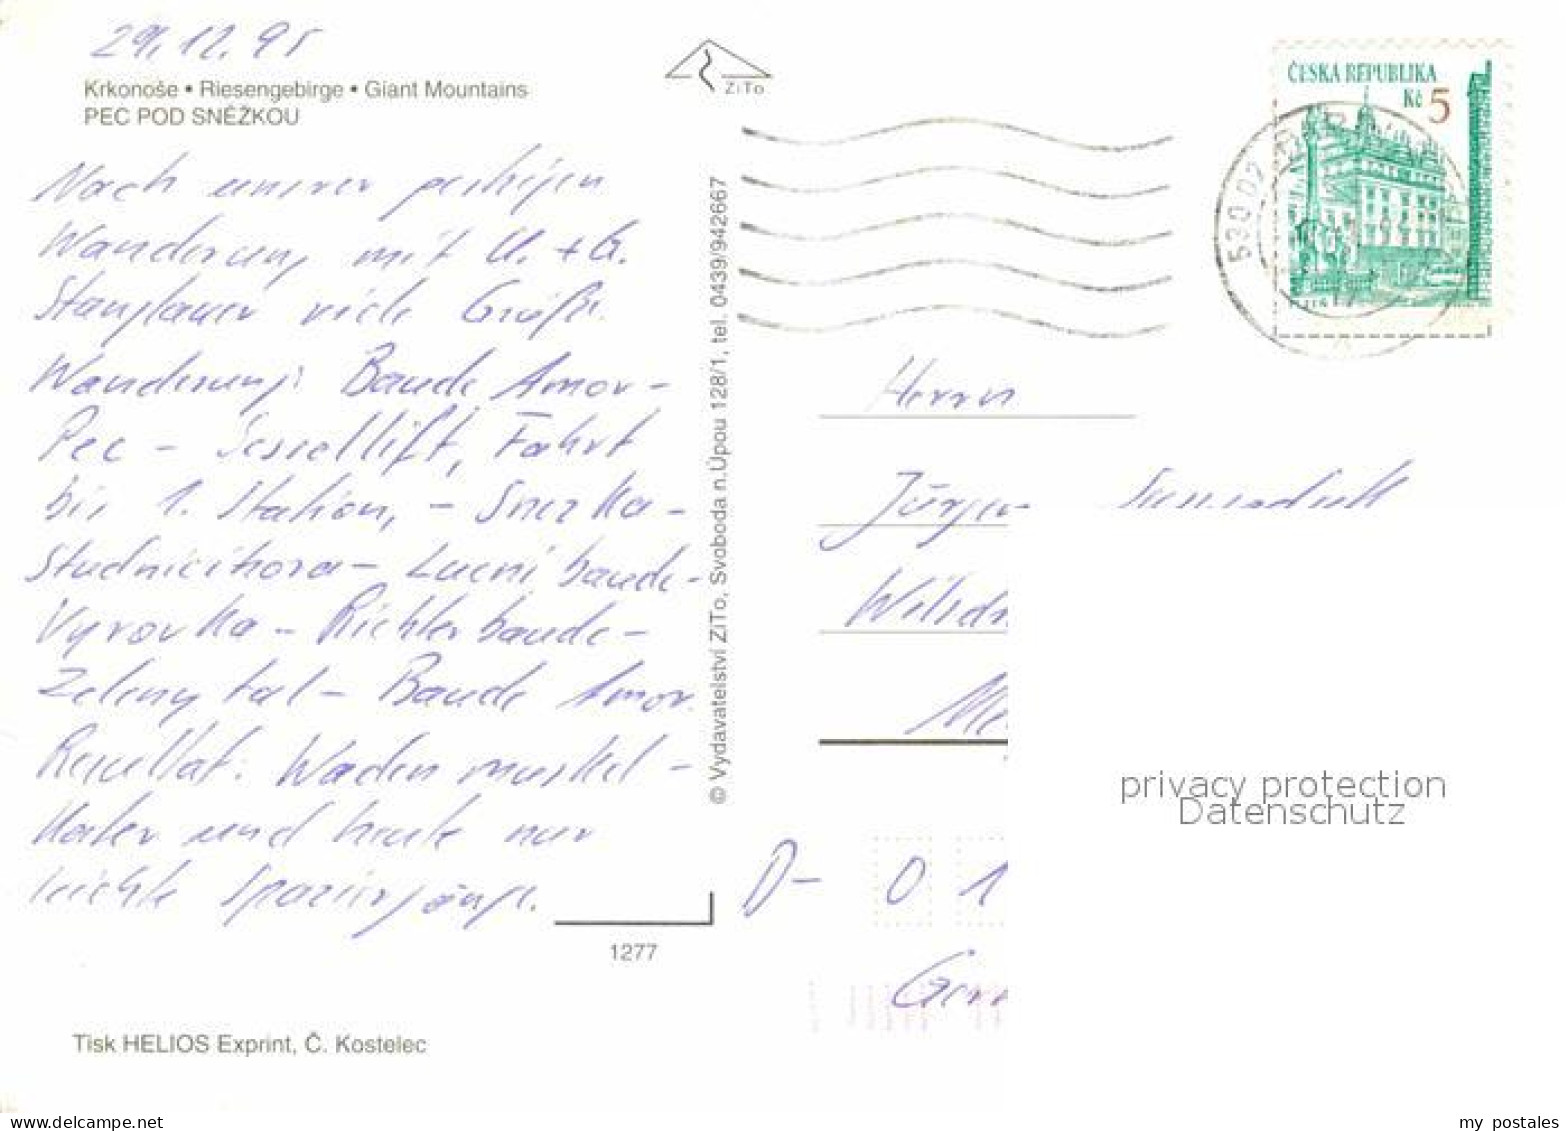 29.12.95
Krkonoše • Riesengebirge • Giant Mountains
PEC POD SNĚŽKOU
Nach unserer gestrigen
Wanderung mit U. + G.
viele Grüße.
Wanderung: Baude Amor -
Pec - Sessellift, Fahrt
bis 1. Station, - Snezka -
Studnicihora - Lucni baude -
Vyrovka - Richterbaude -
Zeleny tal - Baude Amor.
Resultat: Wadenmuskel -
kater und heute nur
leichte Spaziergänge.
1277
Tisk HELIOS Exprint, Č. Kostelec
ZiTo
© Vydavatelství ZiTo, Svoboda n.Úpou 128/1, tel. 0439/942667
ČESKÁ REPUBLIKA
Kč 5
530 02
Herrn
Jürgen
D- 0 1
privacy protection
Datenschutz
my postales